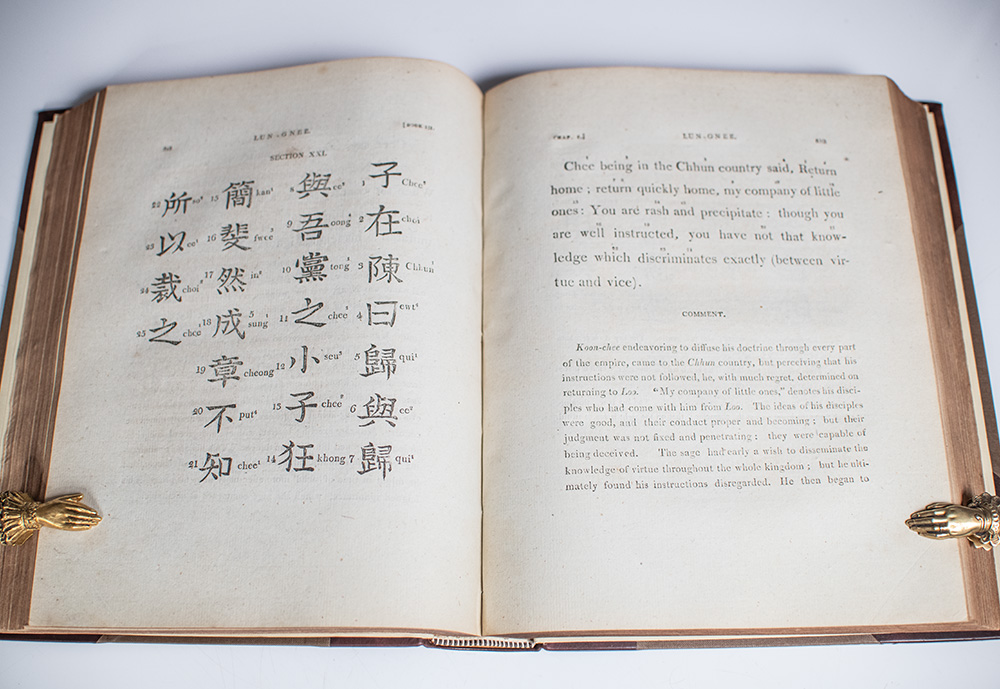 LUN-GNEE.
SECTION XXI.
1 子 Chee² 2 在 choi 3 陳 Chhun 4 曰 ewt⁴ 5 歸 qui¹ 6 與 ee² 7 歸 qui¹
8 與 ee² 9 吾 oong 10 黨 tong 11 之 chee 12 小 seu² 13 子 chee² 14 狂 khong
15 簡 kan 16 斐 fwee 17 然 in⁵ 18 成 sung 19 章 cheong 20 不 put⁴ 21 知 chee¹
22 所 so² 23 以 ee 24 裁 choi 25 之 chee
LUN-GNEE.
Chee being in the Chhun country said, Return
home; return quickly home, my company of little
ones: You are rash and precipitate: though you
are well instructed, you have not that know-
ledge which discriminates exactly (between vir-
tue and vice).
COMMENT.
Koon-chee endeavoring to diffuse his doctrine through every part
of the empire, came to the Chhun country, but perceiving that his
instructions were not followed, he, with much regret, determined on
returning to Loo. "My company of little ones," denotes his disci-
ples who had come with him from Loo. The ideas of his disciples
were good, and their conduct proper and becoming; but their
judgment was not fixed and penetrating: they were capable of
being deceived. The sage had early a wish to disseminate the
knowledge of virtue throughout the whole kingdom; but he ulti-
mately found his instructions disregarded. He then began to